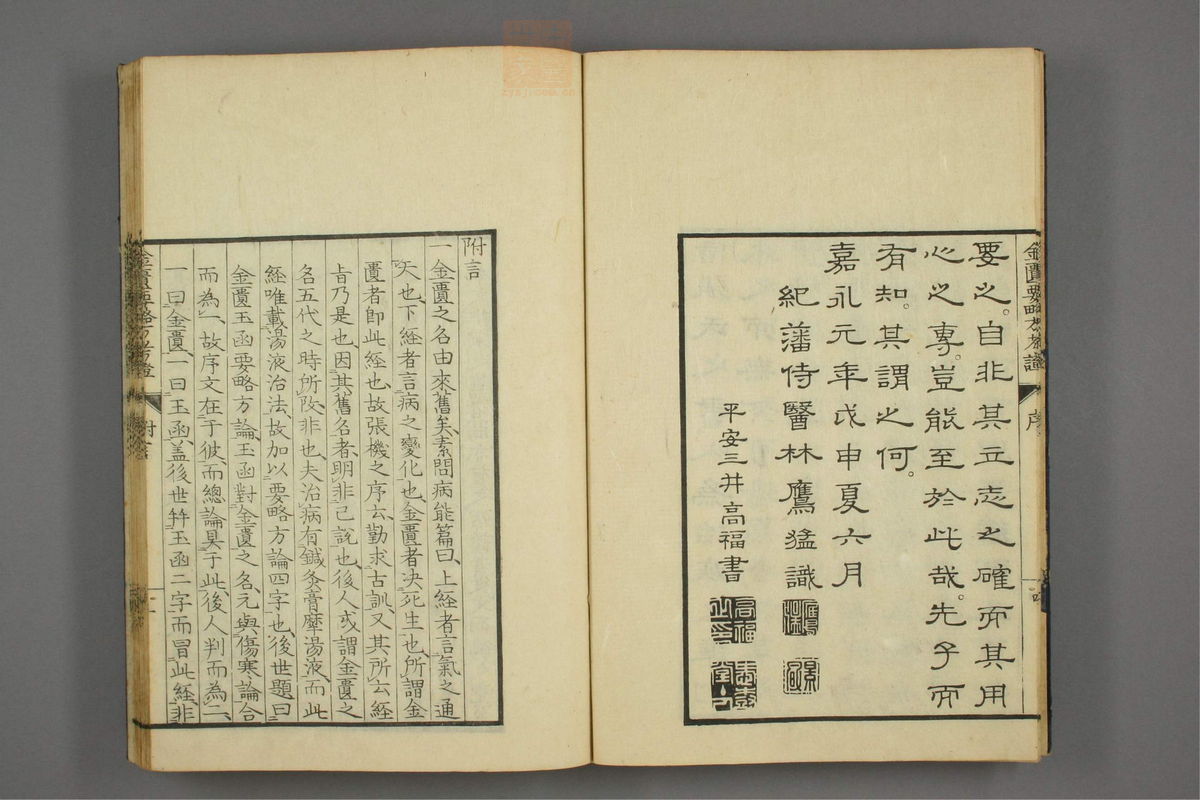 要之。自非其立志之確而其用
心之專。豈能至於此哉。先子而
有知。其謂之何。
嘉永元年戊申夏六月
紀藩侍醫林鷹猛識
平安三井高福書
附言
一金匱之名由來舊矣、素問病能篇曰、上經者言氣之通
天也、下經者言病之變化也、金匱者決死生也、所謂金
匱者卽此經也、故張機之序云、勤求古訓、又其所云經
旨乃是也、因其舊名者、明非己說也、後人或謂金匱之
名五代之時所改、非也、夫治病有鍼灸膏摩湯液、而此
經唯載湯液治法、故加以要略方論四字也、後世題曰
金匱玉函要略方論、玉函對金匱之名、元與傷寒論合
而為一、故序文在于彼、而總論具于此、後人判而為二、
一曰金匱、一曰玉函、蓋後世幷玉函二字而冒此經、非